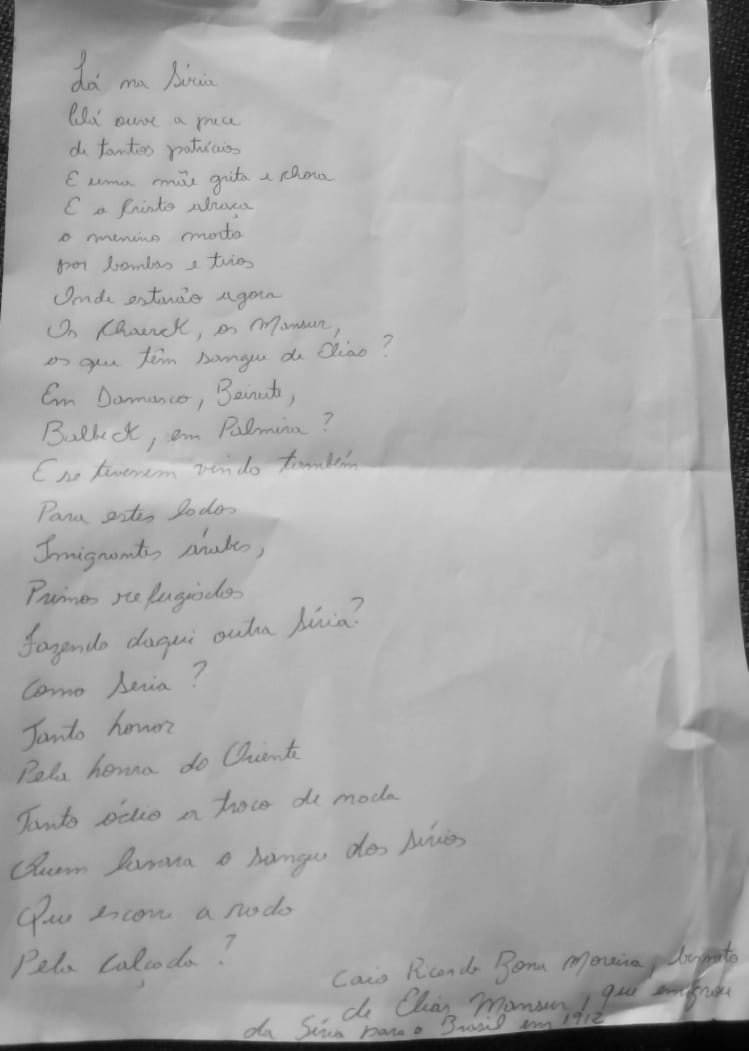 Lá na Síria
Alá ouve a prece
de tantos patrícios
E uma mãe grita e chora
E o Cristo abraça
o menino morto
por bombas e tiros
Onde estarão agora
Os Khaerck, os Mansur,
os que têm sangue de Elias?
Em Damasco, Beirute,
Balbeck, em Palmira?
E se tivessem vindo também
Para estes lados
Imigrantes árabes,
Primos refugiados
Fazendo daqui outra Síria?
Como seria?
Tanto horror
Pela honra do Oriente
Tanto ódio a troco de nada
Quem lavará o sangue dos sírios
Que escorre a rodo
Pela calçada?
Caio Ricardo Bona Moreira, bisneto
de Elias Mansur, que emigrou
da Síria para o Brasil em 1912